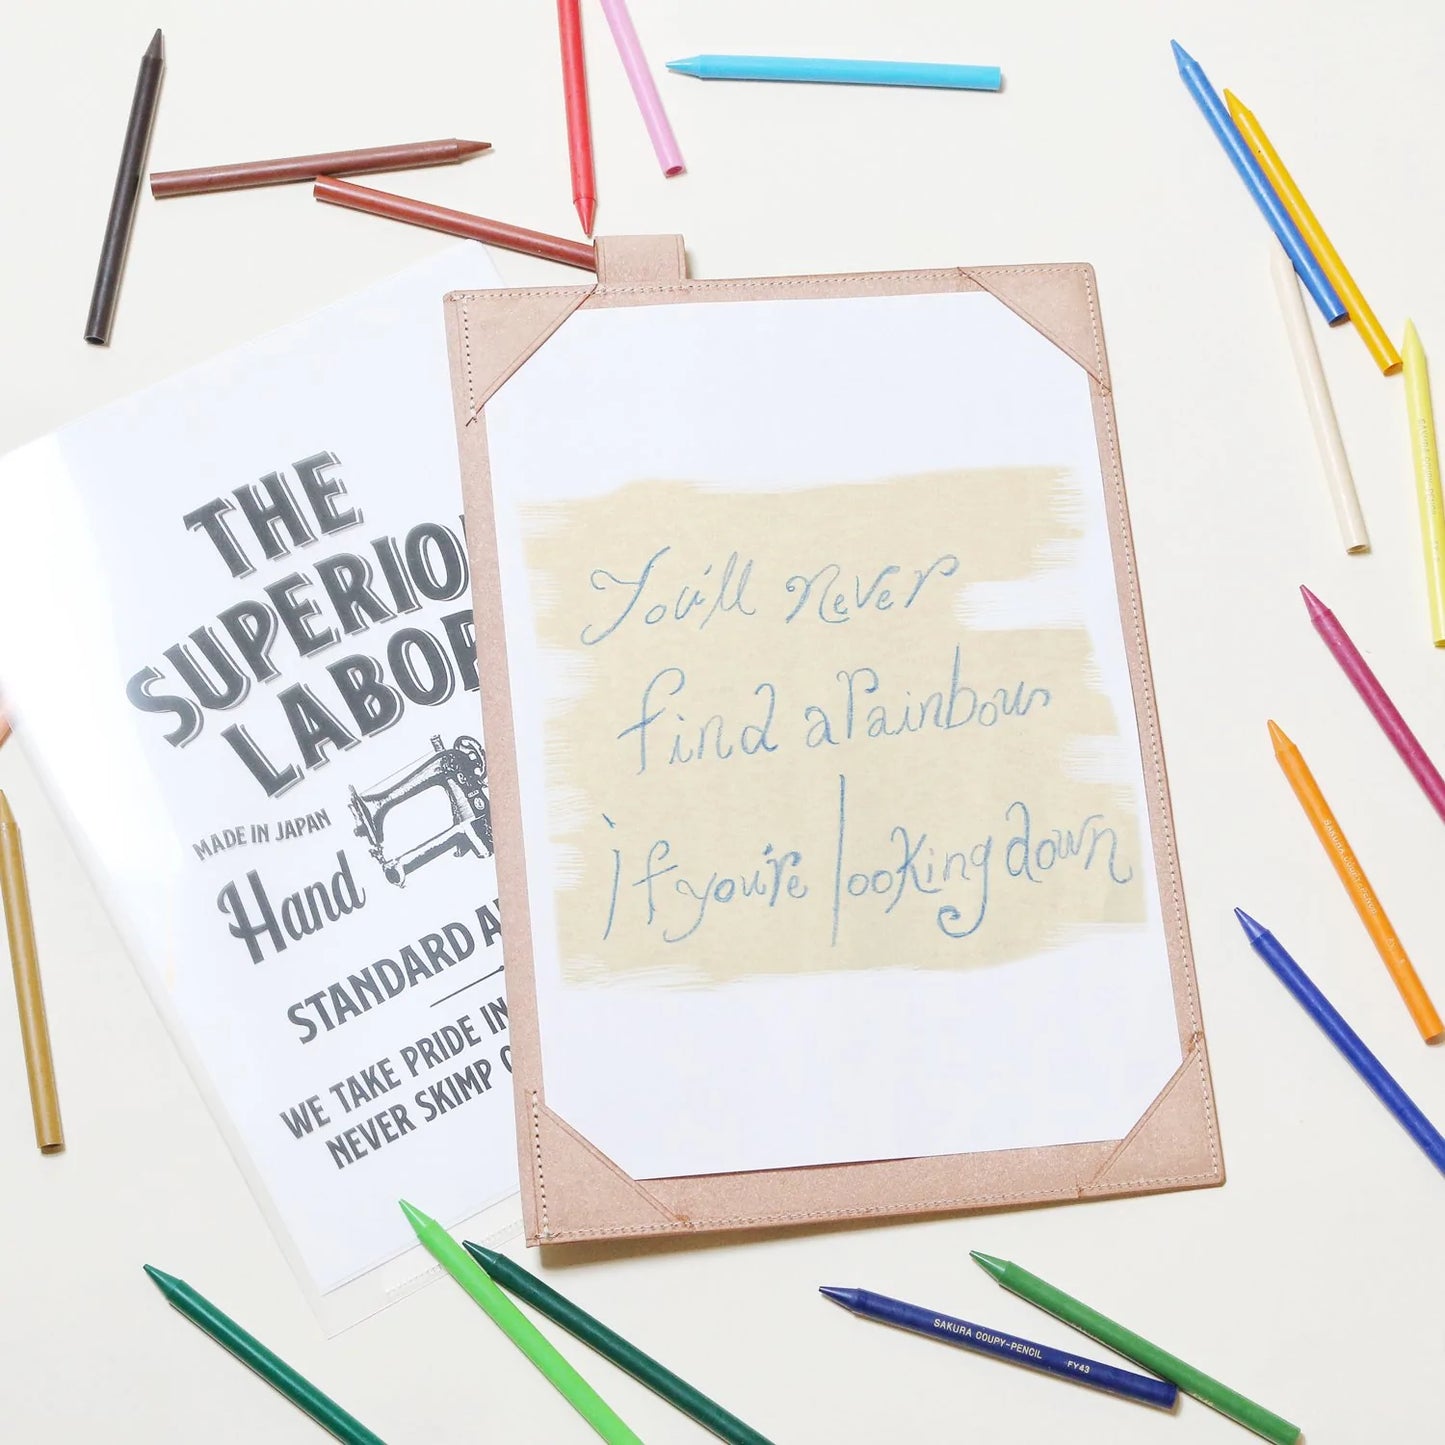 THE
SUPERIO
LABOR
MADE IN JAPAN
Hand
STANDARD A
WE TAKE PRIDE IN
NEVER SKIMP
You'll never
find a rainbow
if you're looking down
SAKURA COUPY-PENCIL
SAKURA COUPY-PENCIL
SAKURA COUPY-PENCIL FY43